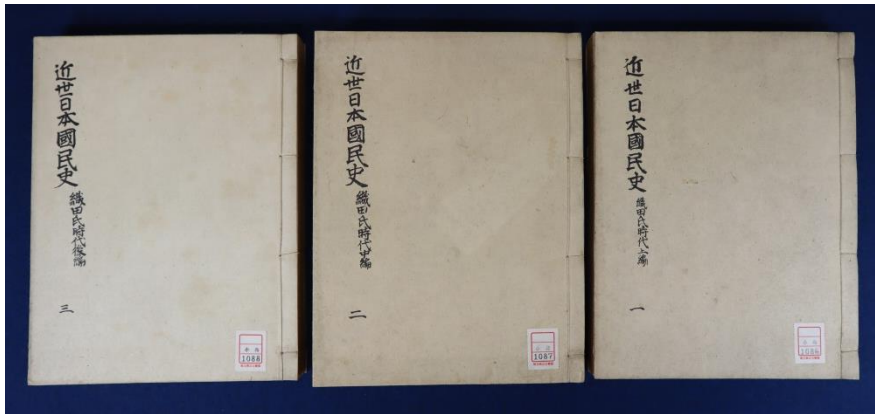 近世日本國民史
織田氏時代上編
一
1086
近世日本國民史
織田氏時代中編
二
1087
近世日本國民史
織田氏時代後編
三
1088